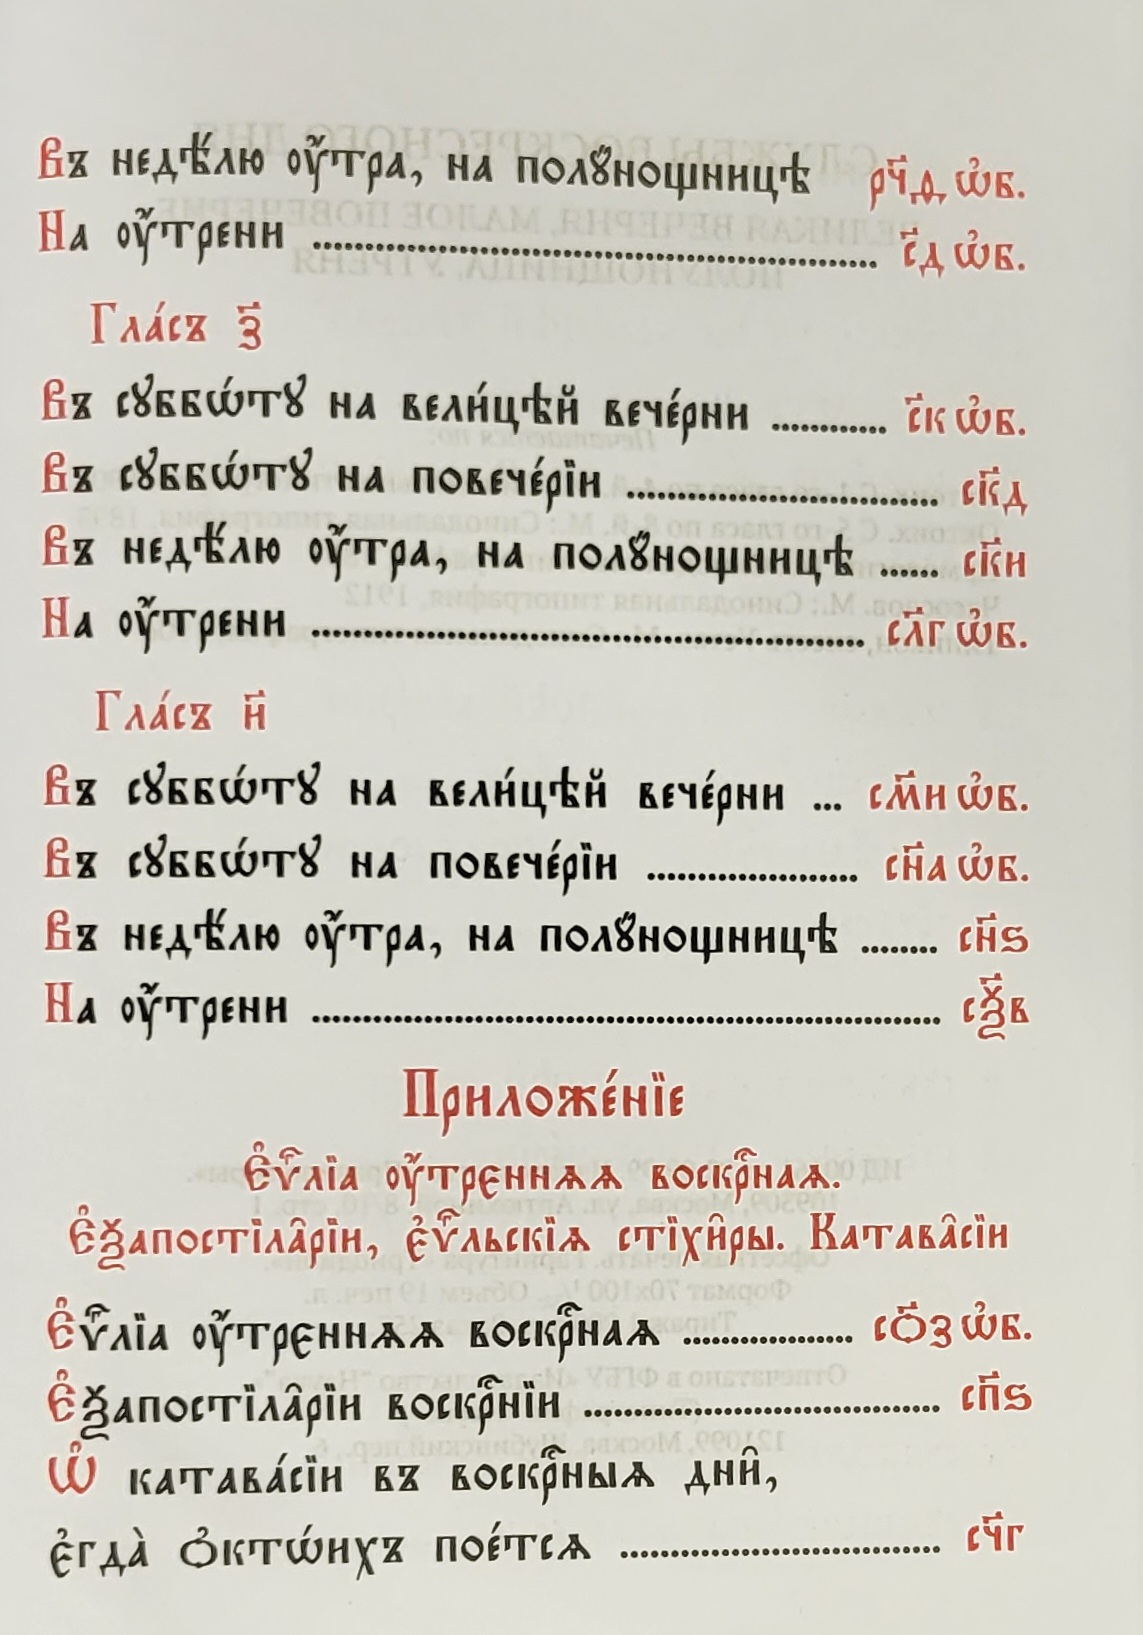 Въ недѣ́лю ѹ҆́тра, на полꙋ́нощницѣ рч҃д ѡ҆б.
На ѹ҆́трени ........ с҃д ѡ҆б.
Гла́съ з҃
Въ сꙋббѡ́тꙋ на вели́цѣй вече́рни ........ с҃к ѡ҆б.
Въ сꙋббѡ́тꙋ на повече́рїи ........ ск҃д
Въ недѣ́лю ѹ҆́тра, на полꙋ́нощницѣ ...... ск҃и
На ѹ҆́трени ........ сл҃г ѡ҆б.
Гла́съ и҃
Въ сꙋббѡ́тꙋ на вели́цѣй вече́рни ... см҃и ѡ҆б.
Въ сꙋббѡ́тꙋ на повече́рїи ........ сн҃а ѡ҆б.
Въ недѣ́лю ѹ҆́тра, на полꙋ́нощницѣ ........ сн҃ѕ
На ѹ҆́трени ........ сѯ҃в
Приложе́нїе
Є҆ѵⷢ҇лїа ѹ҆́трєннѧѧ воскрⷭ҇наѧ.
Є҆ѯапостїла̑рїи, є҆ѵⷢ҇льскїѧ стїхи̑ры. Катава̑сїи
Є҆ѵⷢ҇лїа ѹ҆́трєннѧѧ воскрⷭ҇наѧ ........ со҃з ѡ҆б.
Є҆ѯапостїла̑рїи воскрⷭ҇нїи ........ сп҃ѕ
Ѡ҆ катава́сїи въ воскрⷭ҇ныѧ дни̑,
є҆гда̀ ѻ҆ктѡ́ихъ пое́тсѧ ........ сч҃г